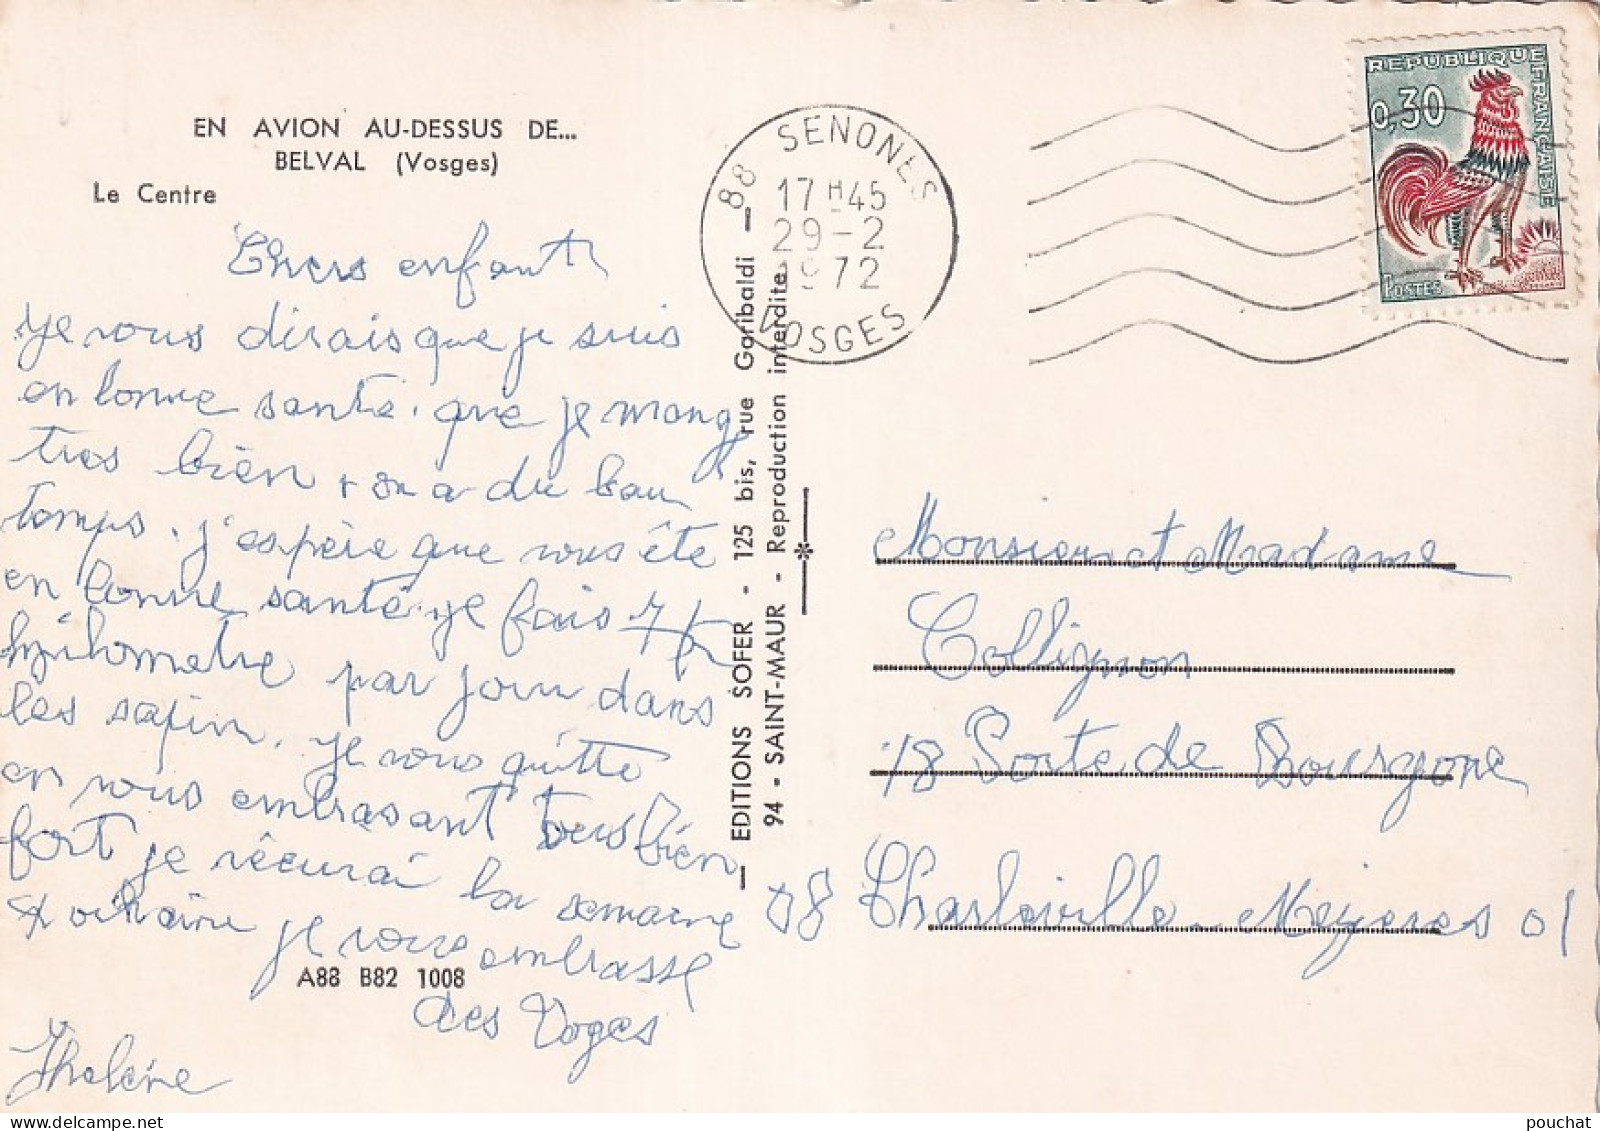 EN AVION AU-DESSUS DE...
BELVAL (Vosges)
Le Centre
Chers enfants
Je vous dirais que je suis
en bonne santé. que je mange
tres bien + on a du beau
temps. j'espère que vous ête
en bonne santé. je fais 7
kilometre par jour dans
les sapin. je vous quitte
en vous embrasant tous bien
fort je
la semaine
je vous embrasse
des Voges
A88 B82 1008
EDITIONS SOFER - 125 bis, rue Garibaldi —
94 - SAINT-MAUR - Reproduction interdite
88 SENONES
17 H 45
29-2
1972
VOSGES
REPUBLIQUE FRANÇAISE
0,30
POSTES
Monsieur et Madame
Collignon
18 Porte de Bourgogne
08 Charleville-Mezieres 01
pouchat